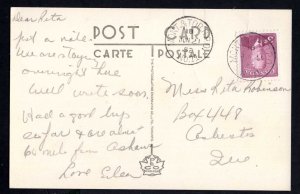 Dear Rita
Just a note
we are staying
overnight here
Will write soon.
Had a good
sugar & cream
64 miles from Oshawa
Love Ellen
POST CARD
CARTE POSTALE
Miss Rita Robinson
Box 448
Asbestos
Que